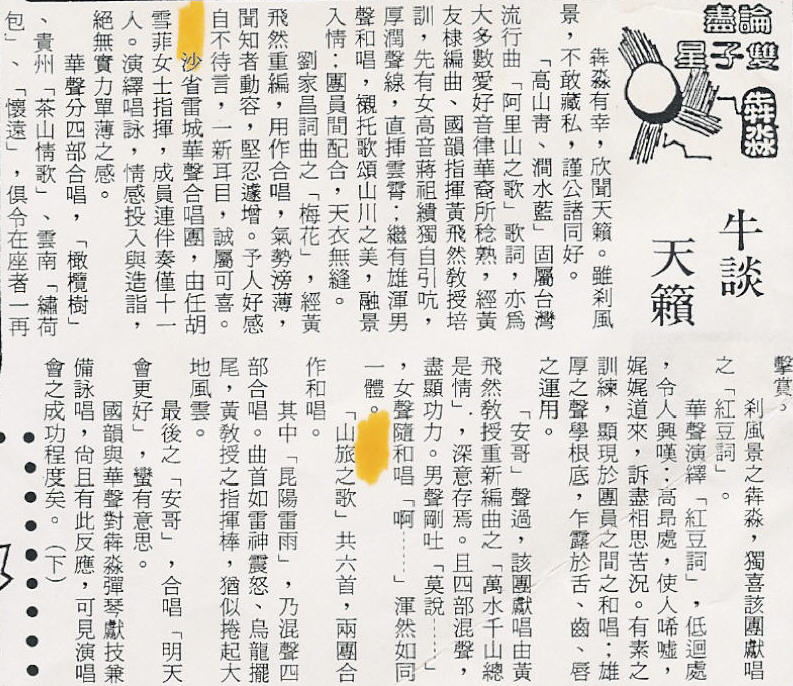 論盡
雙子星
犇淼
牛談
天籟
犇淼有幸,欣聞天籟。雖剎風
景,不敢藏私,謹公諸同好。
「高山青、澗水藍」固屬台灣
流行曲「阿里山之歌」歌詞,亦爲
大多數愛好音律華裔所稔熟,經黃
友棣編曲、國韻指揮黃飛然敎授培
訓,先有女高音蔣祖繢獨自引吭,
厚潤聲線,直揷雲霄;繼有雄渾男
聲和唱,襯托歌頌山川之美,融景
入情;團員間配合,天衣無縫。
劉家昌詞曲之「梅花」,經黃
飛然重編,用作合唱,氣勢滂薄,
聞知者動容,堅忍遽增。予人好感
自不待言,一新耳目,誠屬可喜。
沙省雷城華聲合唱團,由任胡
雪菲女士指揮,成員連伴奏僅十一
人。演繹唱詠,情感投入與造詣,
絕無實力單薄之感。
華聲分四部合唱,「橄欖樹」
、貴州「茶山情歌」、雲南「繡荷
包」、「懷遠」,俱令在座者一再
擊賞。
剎風景之犇淼,獨喜該團獻唱
之「紅豆詞」。
華聲演繹「紅豆詞」,低迴處
,令人興嘆;高昂處,使人唏噓,
娓娓道來,訴盡相思苦況。有素之
訓練,顯現於團員之間之和唱;雄
厚之聲學根底,乍露於舌、齒、唇
之運用。
「安哥」聲過,該團獻唱由黃
飛然敎授重新編曲之「萬水千山總
是情」,深意存焉。且四部混聲,
盡顯功力。男聲剛吐「莫說……」
,女聲隨和唱「啊……」渾然如同
一體。
「山旅之歌」共六首,兩團合
作和唱。
其中「昆陽雷雨」,乃混聲四
部合唱。曲首如雷神震怒、烏龍擺
尾,黃敎授之指揮棒,猶似捲起大
地風雲。
最後之「安哥」,合唱「明天
會更好」,蠻有意思。
國韻與華聲對犇淼彈琴獻技兼
備詠唱,尙且有此反應,可見演唱
會之成功程度矣。(下)